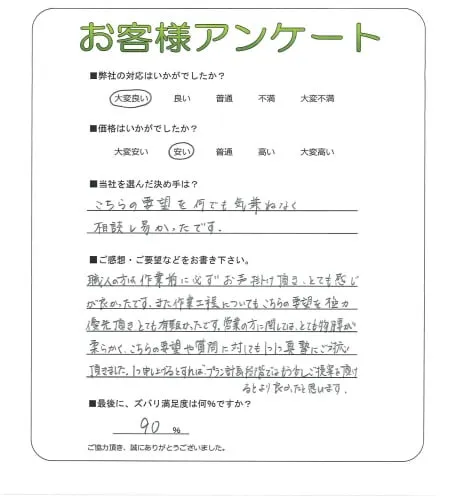 お客様アンケート
■弊社の対応はいかがでしたか？
大変良い 良い 普通 不満 大変不満
■価格はいかがでしたか？
大変安い 安い 普通 高い 大変高い
■当社を選んだ決め手は？
こちらの要望を何でも気兼ねなく
相談し易かったです。
■ご感想・ご要望などをお書き下さい。
職人の方は作業前に必ずお声掛け頂き、とても感じ
が良かったです。また作業工程についてもこちらの要望を極力
優先頂きとても有難かったです。営業の方に関しては、とても物腰が
柔らかく、こちらの要望や質問に対しても1つ1つ真摯にご対応
頂きました。1つ申し上げるとすれば、プラン計画段階ではもう少しご提案を頂け
るとより良かったと思います。
■最後に、ズバリ満足度は何%ですか？
90 %
ご協力頂き、誠にありがとうございました。